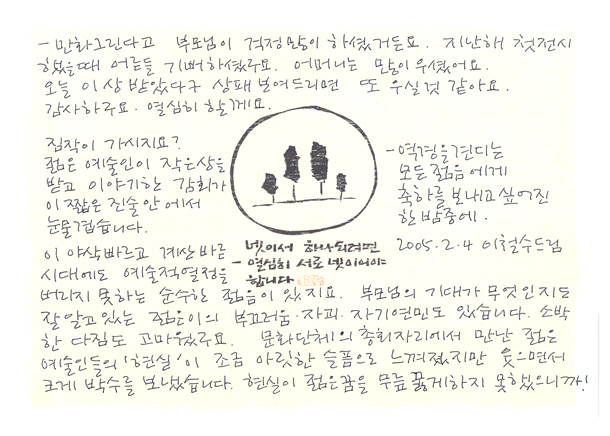 - 만화그린다고 부모님이 걱정많이 하셨거든요. 지난해 첫전시
했을때 어른들 기뻐하셨구요. 어머니는 많이 우셨어요.
오늘 이 상 받았다구 상패 보여드리면 또 우실것 같아요.
감사하구요. 열심히 할게요.
짐작이 가시지요?
젊은 예술인이 작은상을
받고 이야기한 감회가
이 짧은 진술 안에서
눈물겹습니다.
- 역경을 견디는
모든 젊음에게
축하를 보내고 싶어진
한밤중에.
2005.2.4 이철수드림
넷이서 하나되려면
- 열심히 서로 넷이어야
합니다
이 야삭빠르고 계산바른
시대에도 예술적열정을
버리지 못하는 순수한 젊음이 있지요. 부모님의 기대가 무엇인지도
잘 알고있는 젊은이의 부끄러움·자괴·자기연민도 있습니다. 소박
한 다짐도 고마웠구요. 문화단체의 총회자리에서 만난 젊은
예술인들의 '현실'이 조금 아릿한 슬픔으로 느껴졌지만 웃으면서
크게 박수를 보냈습니다. 현실이 젊은꿈을 무릎꿇게하지 못했으니까!